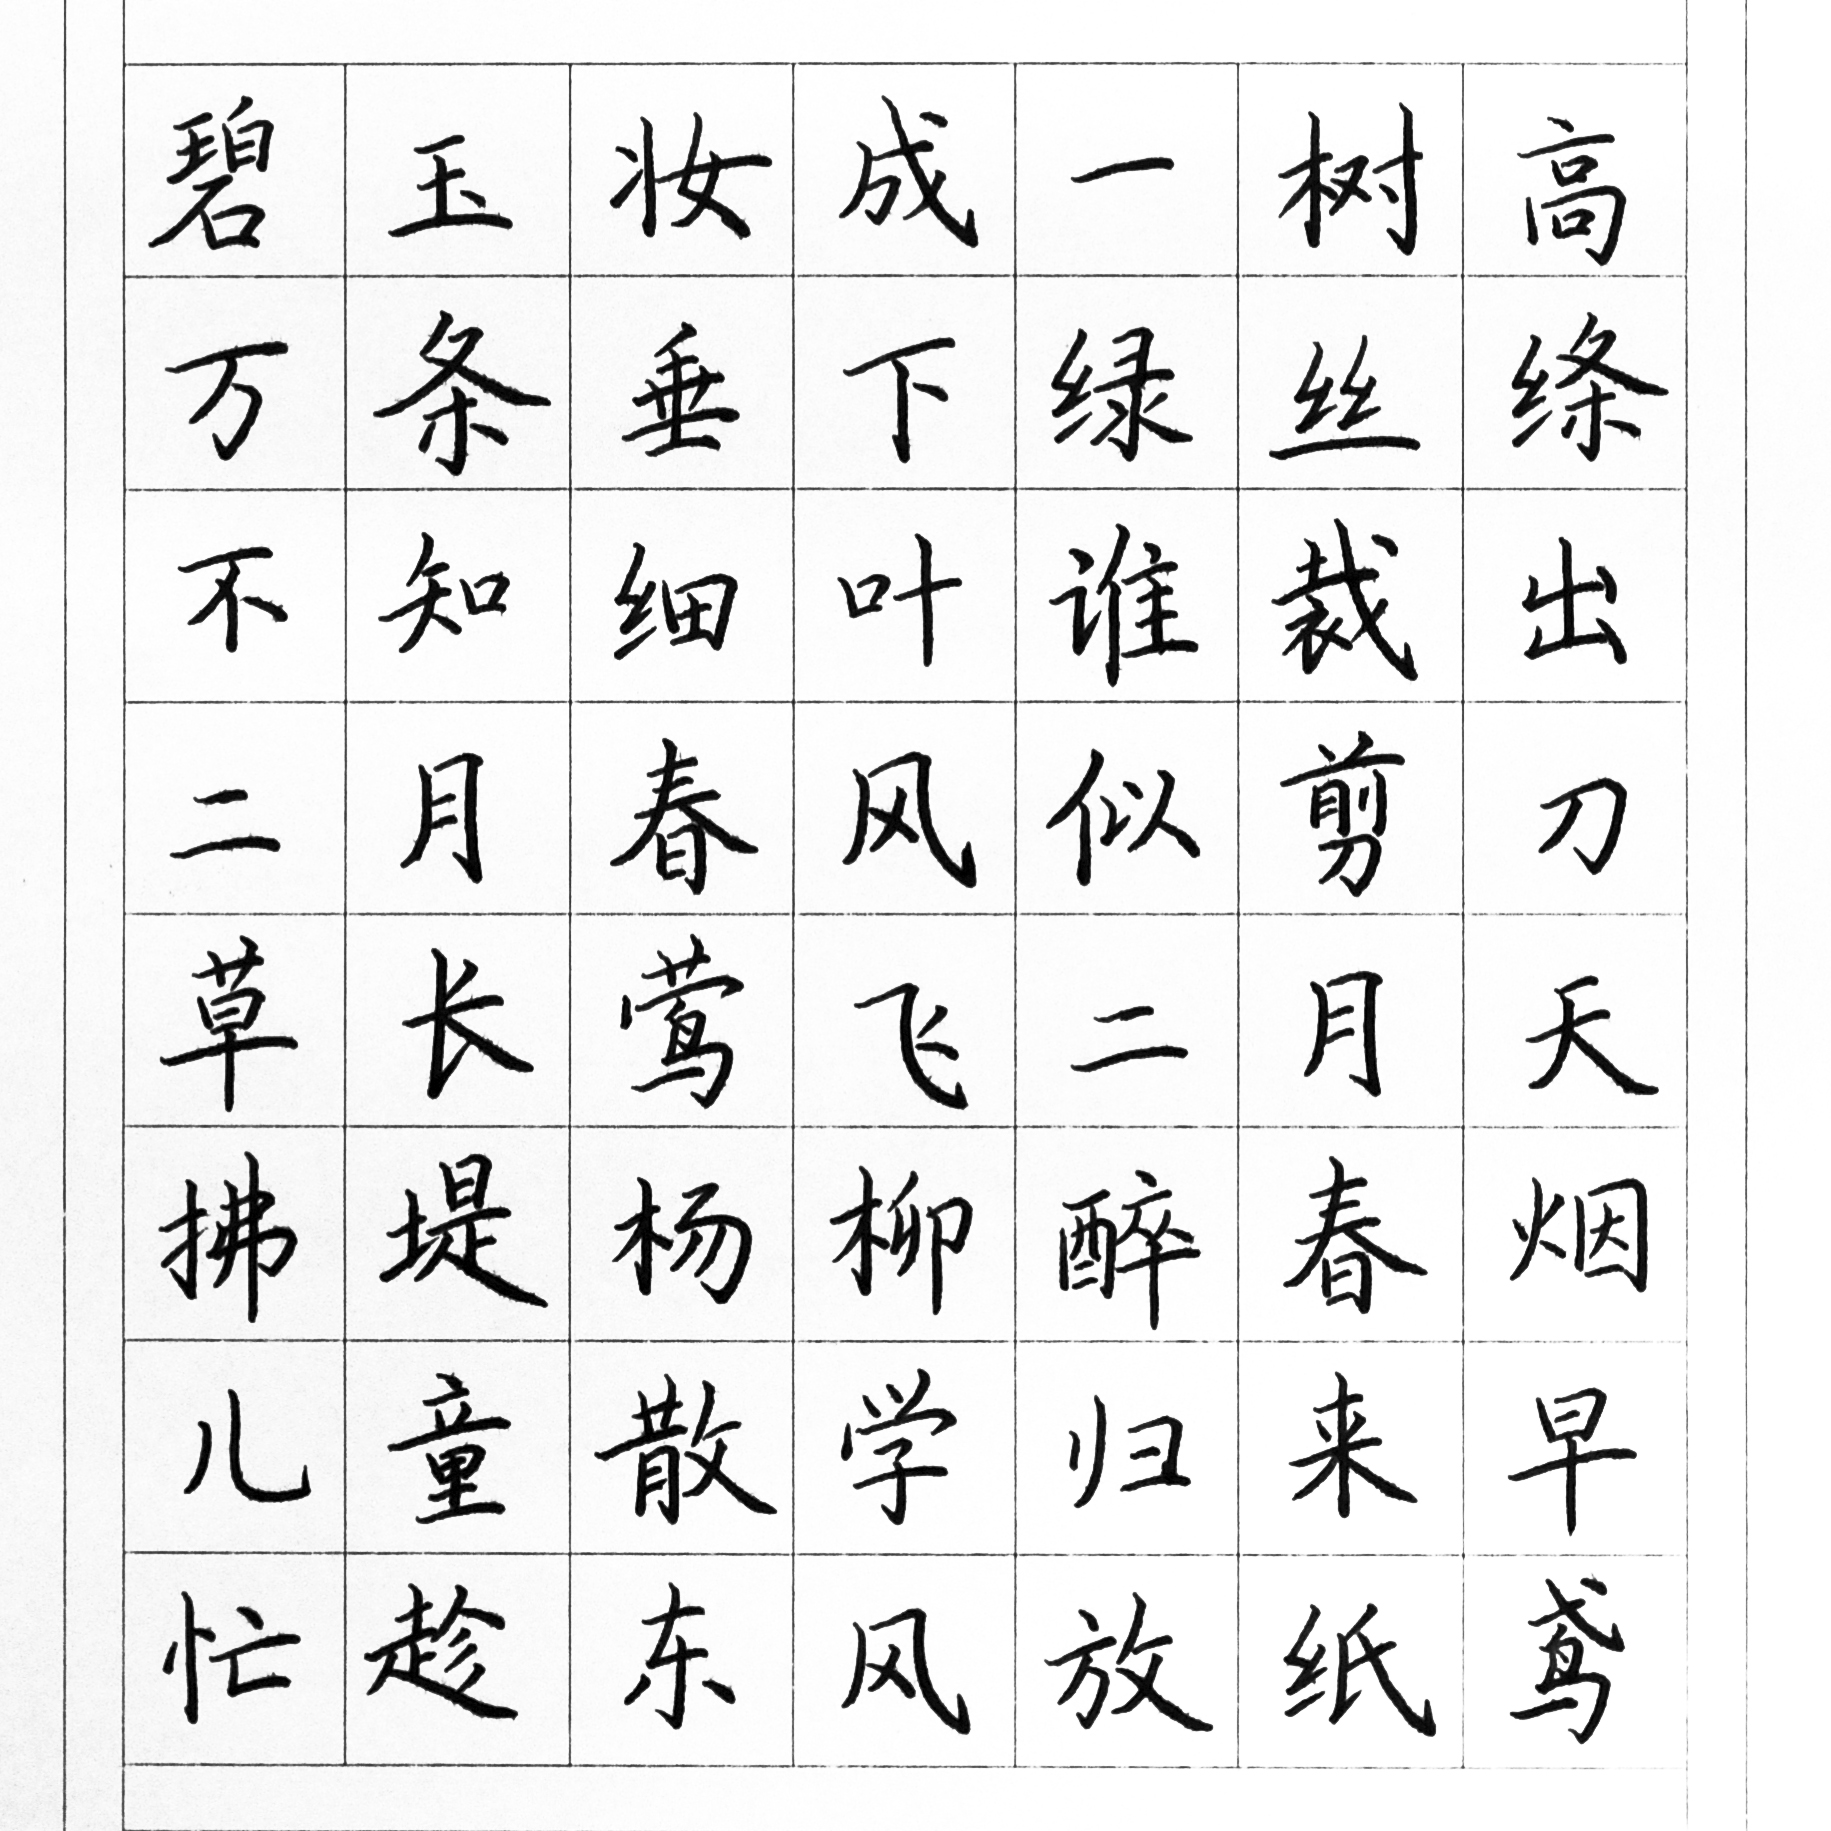 碧玉妆成一树高
万条垂下绿丝绦
不知细叶谁裁出
二月春风似剪刀
草长莺飞二月天
拂堤杨柳醉春烟
儿童散学归来早
忙趁东风放纸鸢